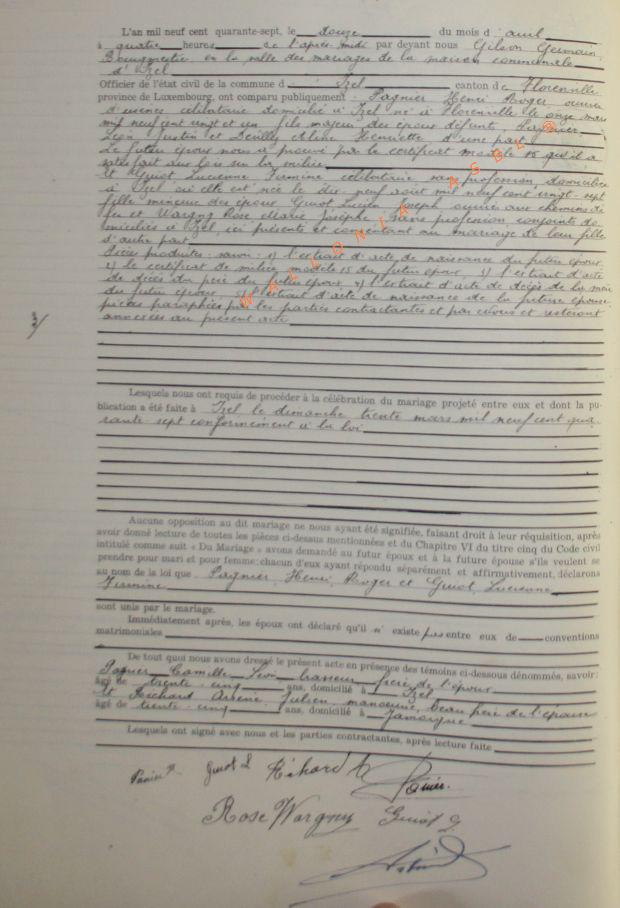 L'an mil neuf cent quarante-sept, le douze du mois d'avril
à quatre heures de l'après-midi par devant nous Gilson Germain,
Bourgmestre en la salle des mariages de la maison communale
d'Izel
Officier de l'état civil de la commune d'Izel canton de Florenville
province de Luxembourg, ont comparu publiquement : Pagnier Henri Roger, ouvrier
d'usines célibataire domicilié à Izel né à Florenville le onze mars
mil neuf cent vingt et un fils majeur des époux défunts, Pagnier,
Léon Justin et Aline Henriette d'une part
Le futur époux nous a prouvé par le certificat modèle 15 qu'il a
satisfait aux lois sur la milice
Et Guiot Lucienne Fermine célibataire sans profession, domiciliée
à Izel où elle est née le dix-neuf août mil neuf cent vingt-sept
fille mineure des époux Guiot Lucien Joseph ouvrier aux chemins de
fer et Wargny Rose Marie Josèphe, sans profession, conjoints do-
miciliés à Izel, ici présents et consentant au mariage de leur fille
d'autre part
Pièces produites : savoir : 1) l'extrait d'acte de naissance du futur époux,
2) le certificat de milice modèle 15 du futur époux, 3) l'extrait d'acte
de décès du père du futur époux, 4) l'extrait d'acte de décès de la mère
du futur époux, 5) l'extrait d'acte de naissance de la future épouse
pièces paraphées par les parties contractantes et par nous et resteront
annexées au présent acte
WALLONIA ASBL ®
3/
Lesquels nous ont requis de procéder à la célébration du mariage projeté entre eux et dont la pu-
blication a été faite à Izel le dimanche trente mars mil neuf cent qua-
rante-sept conformément à la loi
Aucune opposition au dit mariage ne nous ayant été signifiée, faisant droit à leur réquisition, après
avoir donné lecture de toutes les pièces ci-dessus mentionnées et du Chapitre VI du titre cinq du Code civil
intitulé comme suit « Du Mariage » avons demandé au futur époux et à la future épouse s'ils veulent se
prendre pour mari et pour femme: chacun d'eux ayant répondu séparément et affirmativement, déclarons
au nom de la loi que Pagnier, Henri, Roger et Guiot, Lucienne
Fermine
sont unis par le mariage.
Immédiatement après, les époux ont déclaré qu'il n'existe pas entre eux de conventions
matrimoniales
De tout quoi nous avons dressé le présent acte en présence des témoins ci-dessous dénommés, savoir:
Camille Léon brasseur frère de l'époux
âgé de trente-cinq ans, domicilié à Izel
et Richard Arsène Julien, manœuvre, beau frère de l'épouse
âgé de trente-cinq ans, domicilié à Jamoigne
Lesquels ont signé avec nous et les parties contractantes, après lecture faite
Guiot L Richard A
Rose Wargny Guiot L